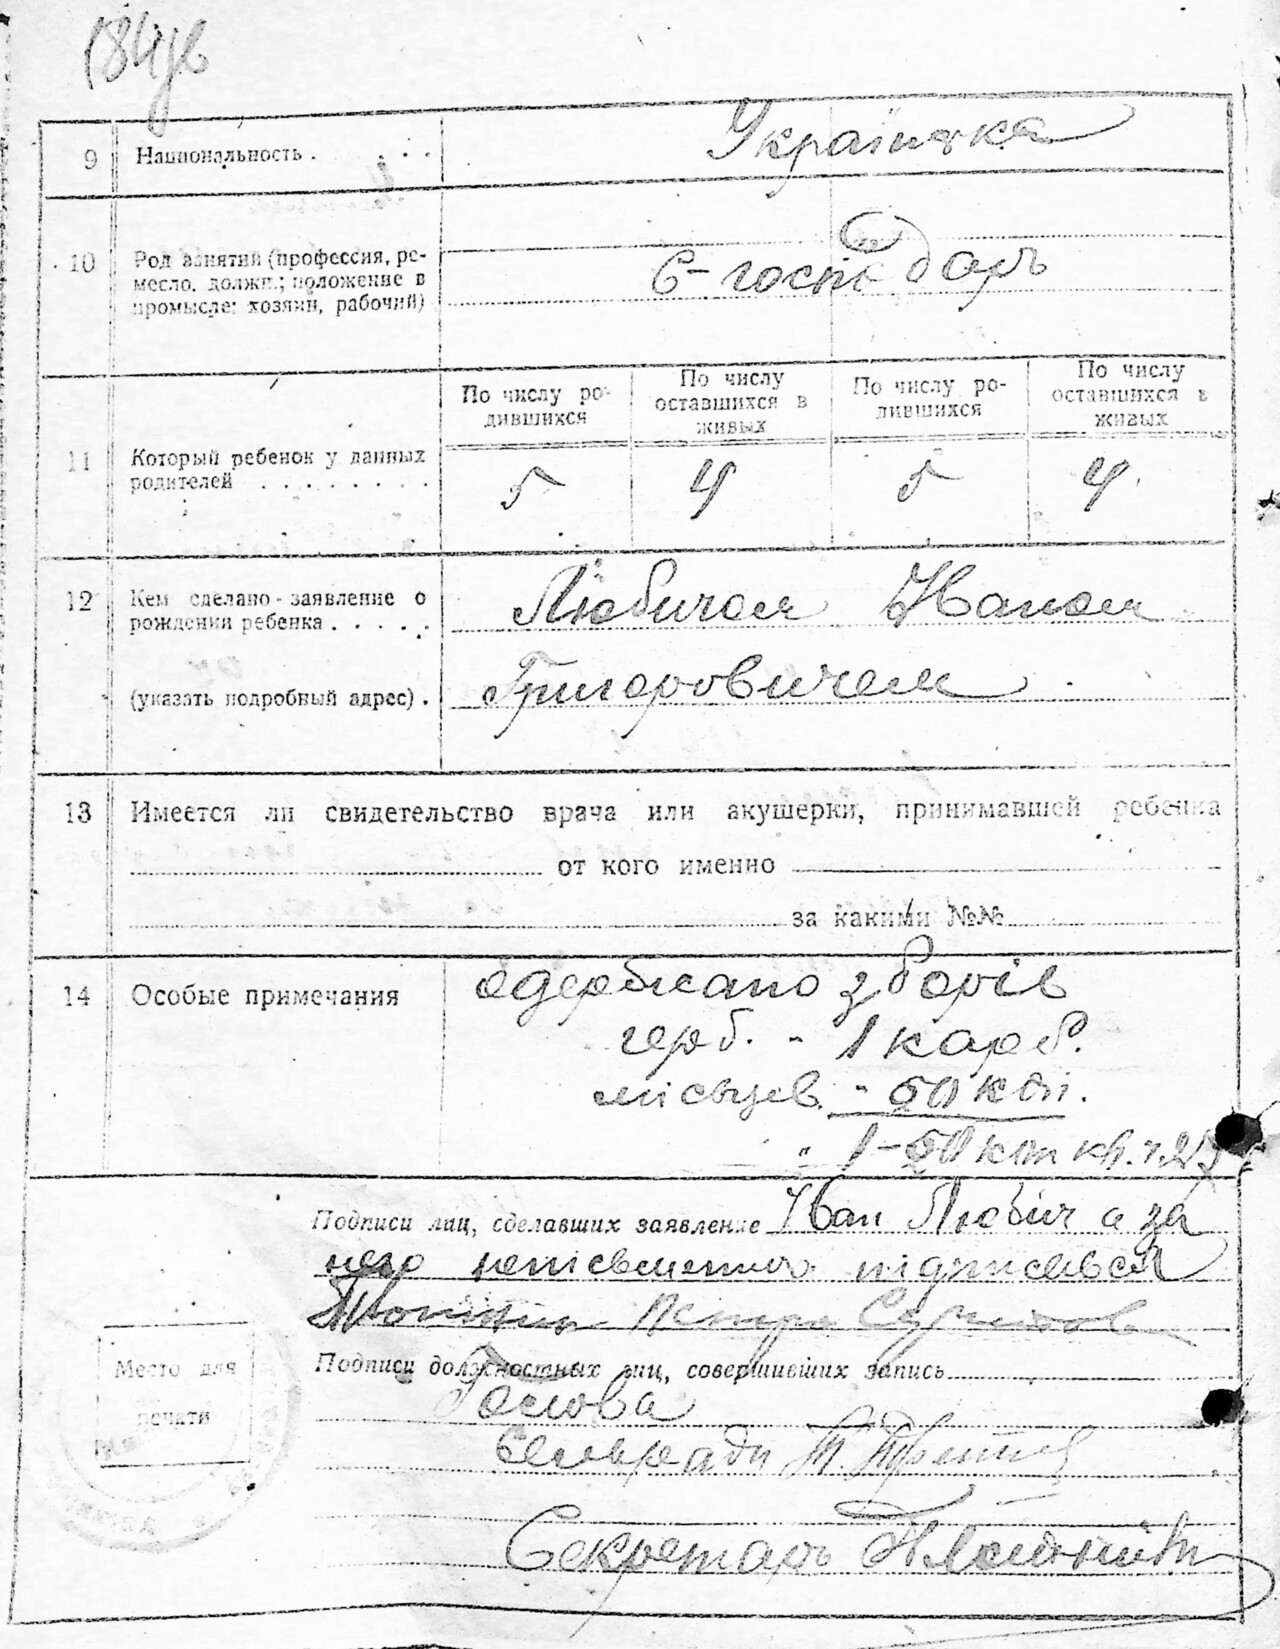 184зв
9 Национальность . . . . Українка
10 Род занятий (профессия, ре-
месло, должн.; положение в
промысле: хозяин, рабочий)
С-господарь
11 Который ребенок у данных
родителей . . . . . . . .
По числу ро-
дившихся
По числу
оставшихся в
живых
По числу ро-
дившихся
По числу
оставшихся в
живых
5 4 5 4
12 Кем сделано заявление о
рождении ребенка . . . . .
(указать подробный адрес) .
Любичом Іваном
Григоровичем
13 Имеется ли свидетельство врача или акушерки, принимавшей ребенка
от кого именно
за какими №№
14 Особые примечания
Одержано зборів
герб. - 1 карб.
місцев. - 50 коп.
" 1-50 коп кв.
Подписи лиц, сделавших заявление Іван Любич а за
него неписьменного підписався
Петро
Подписи должностных лиц, совершивших запись
Голова
Сельради
Секретарь
Место для
печати